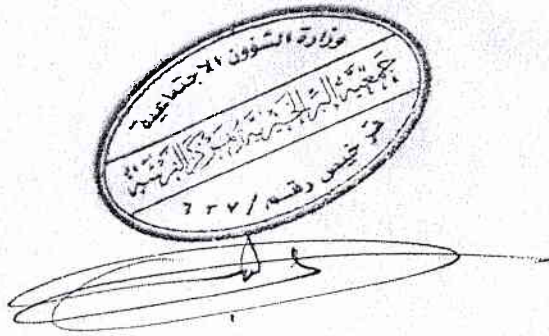 وزارة الشؤون الاجتماعية
جمعية البر الخيرية بمركز
ترخيص رقم / ٦٣٧